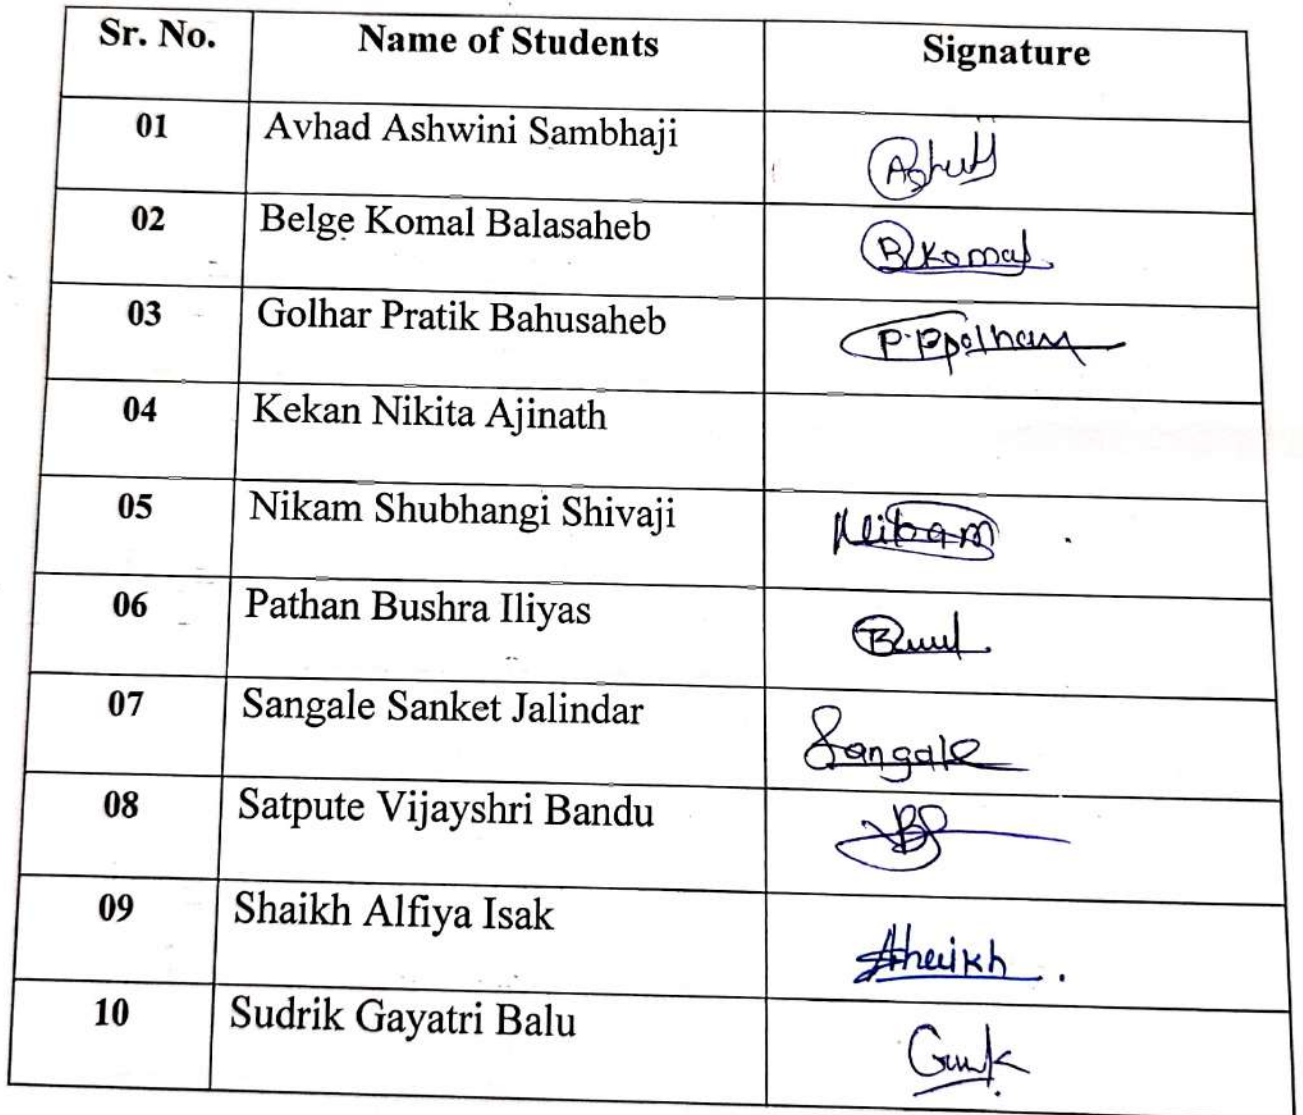 Sr. No. Name of Students Signature
01 Avhad Ashwini Sambhaji
02 Belge Komal Balasaheb B Komal
03 Golhar Pratik Bahusaheb
04 Kekan Nikita Ajinath
05 Nikam Shubhangi Shivaji Nikam
06 Pathan Bushra Iliyas
07 Sangale Sanket Jalindar Sangale
08 Satpute Vijayshri Bandu
09 Shaikh Alfiya Isak
10 Sudrik Gayatri Balu